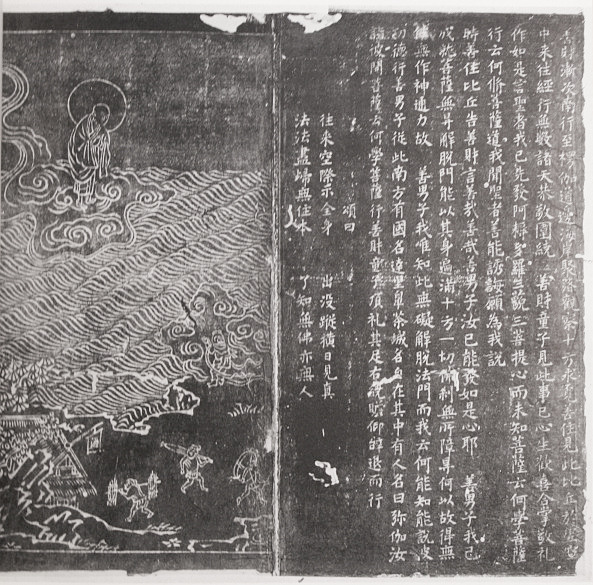 時漸次南行至楞伽道邊海岸聚落觀察十方求覓善住見此比丘於虛空
中來往經行無數諸天恭敬圍繞 善財童子見此事已心生歡喜合掌敬礼
作如是言聖者我已先發阿耨多羅三藐三菩提心而未知菩薩云何學菩薩
行云何修菩薩道我聞聖者善能誘誨願為我説
時善住比丘告善財言善哉善哉善男子汝已能發如是心耶 善男子我已
成就菩薩無㝵解脫門能以其身遍滿十方一切佛刹無所障㝵何以故得無
住無作神通力故 善男子我唯知此無礙解脫法門而我云何能知能說彼
功德行善男子從此南方有國名達里鼻荼城名自在其中有人名曰弥伽汝
詣彼問菩薩云何學菩薩行善財童子頂礼其足右繞瞻仰辞退而行
頌曰
往來空際示全身 出没蹤橫日見真
法法盡歸無住本 了知無佛亦無人